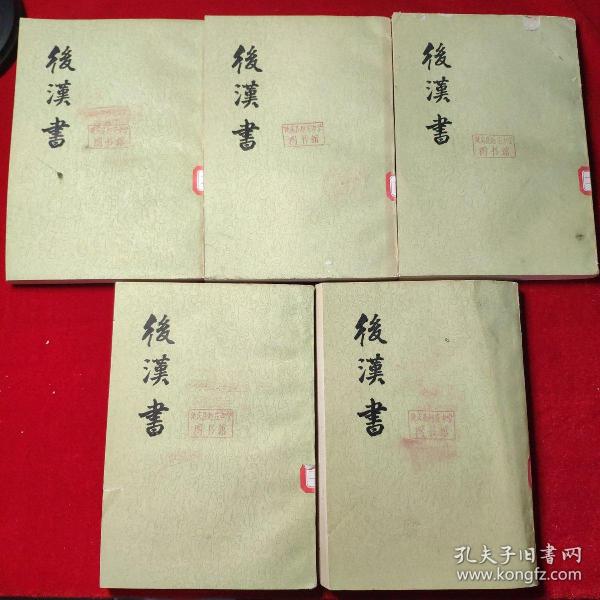 後漢書
图书馆
後漢書
图书馆
後漢書
图书馆
後漢書
图书馆
後漢書
图书馆
孔夫子旧书网
www.kongfz.com